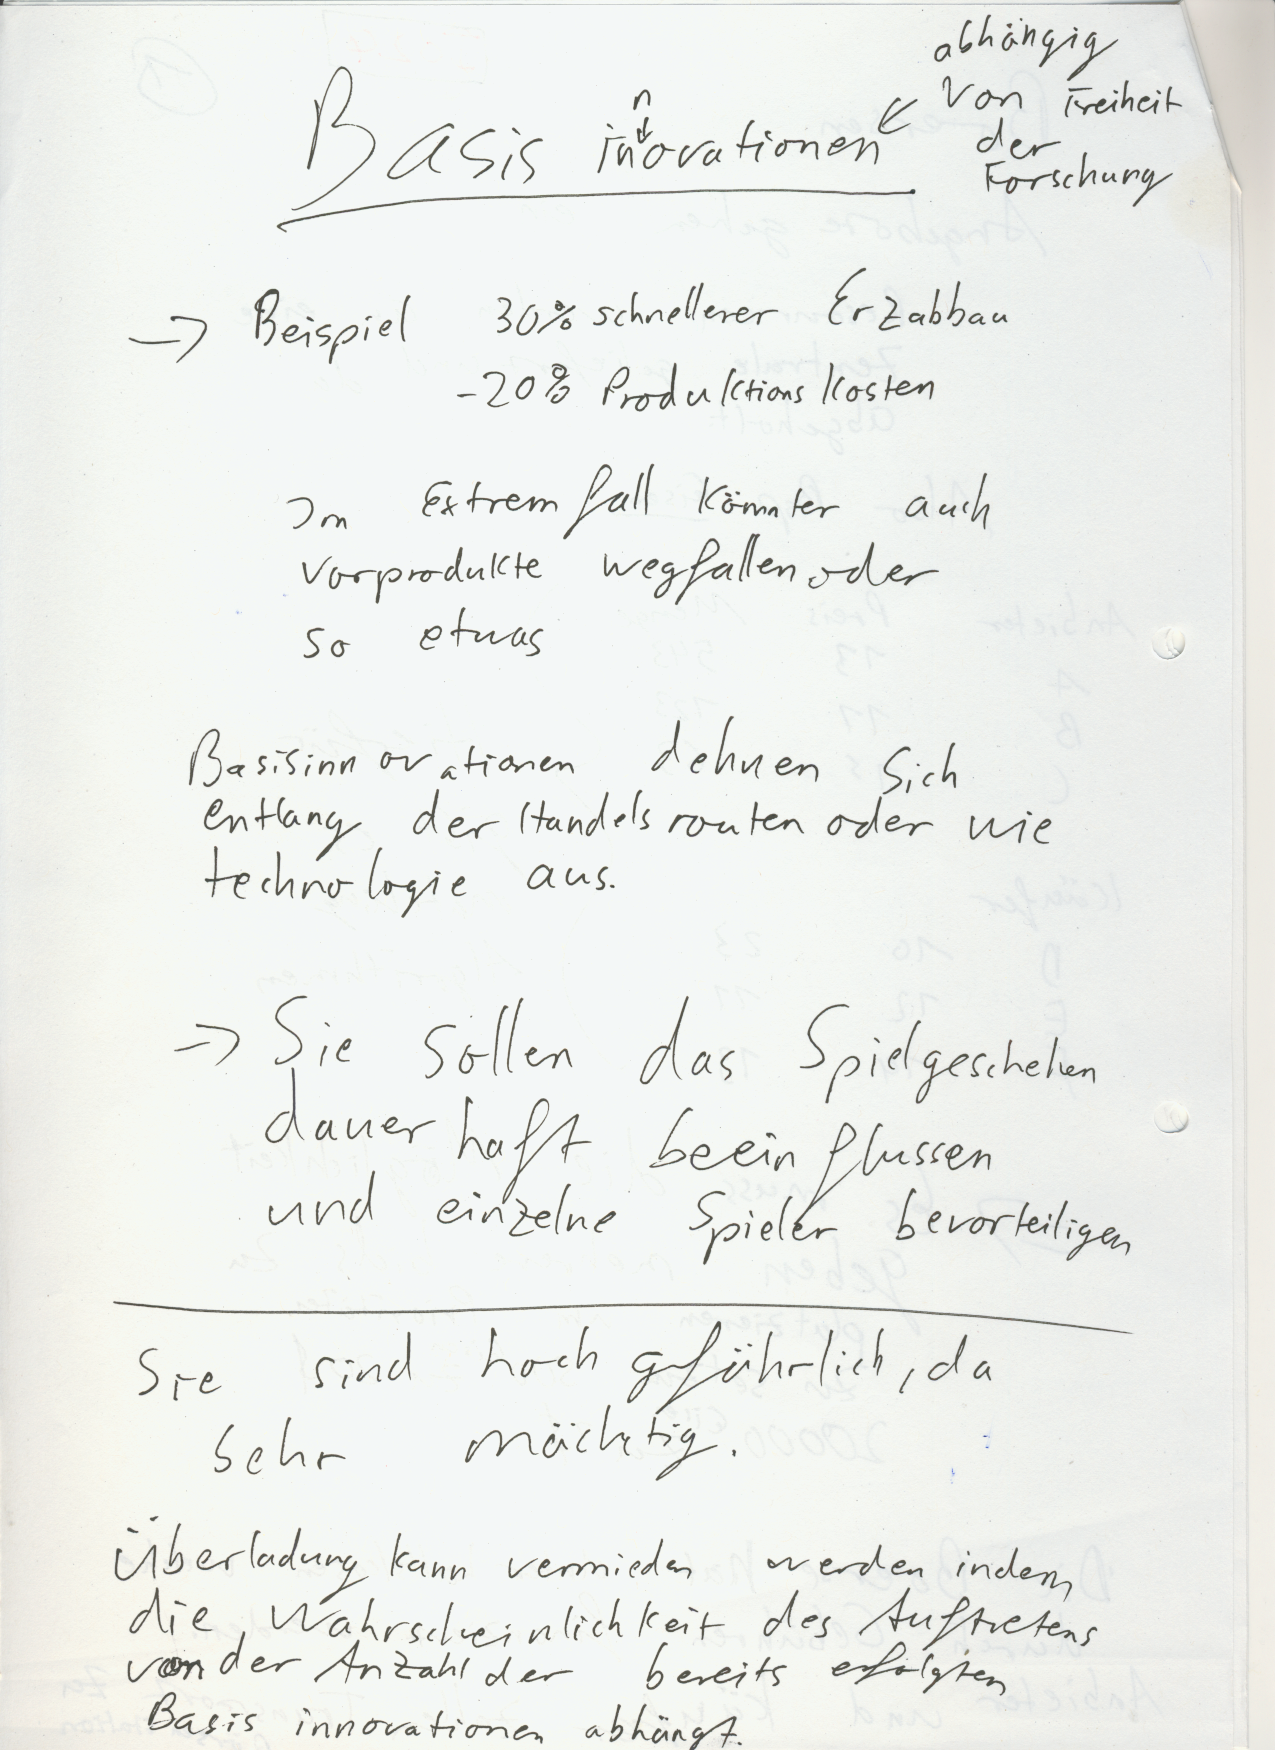 abhängig
von Freiheit
der
Forschung
n
Basis inovationen
→ Beispiel 30% schnellerer Erzabbau
-20% Produktionskosten
Im Extremfall könnten auch
vorprodukte wegfallen oder
so etwas
Basisinnovationen dehnen sich
entlang der Handelsrouten oder wie
technologie aus.
=> Sie sollen das Spielgeschehen
dauerhaft beeinflussen
und einzelne Spieler bevorteiligen
Sie sind hoch gefährlich, da
sehr mächtig.
Überladung kann vermieden werden indem
die Wahrscheinlichkeit des Auftretens
von der Anzahl der bereits erfolgten
Basis innovationen abhängt.